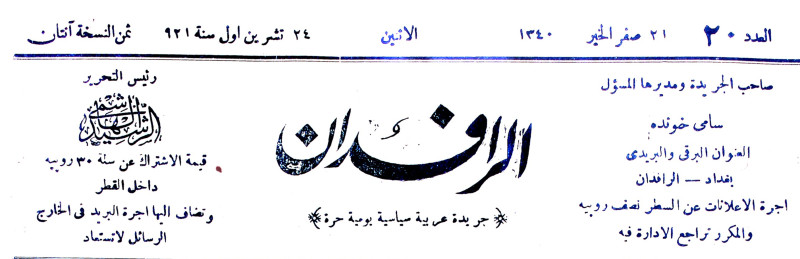 العدد ٢٠ ٢١ صفر الخير ١٣٤٠ الاثنين ٢٤ تشرين اول سنة ٩٢١ ثمن النسخة آنتان
صاحب الجريدة ومديرها المسؤل
سامي خونده
العنوان البرقي والبريدي
بغداد — الرافدان
اجرة الاعلانات عن السطر نصف روبيه
والمكرر تراجع الادارة فيه
الرافدان
جريدة عربية سياسية يومية حرة
رئيس التحرير
قيمة الاشتراك عن سنة ٣٠ روبيه
داخل القطر
وتضاف اليها اجرة البريد في الخارج
الرسائل لاتستعاد